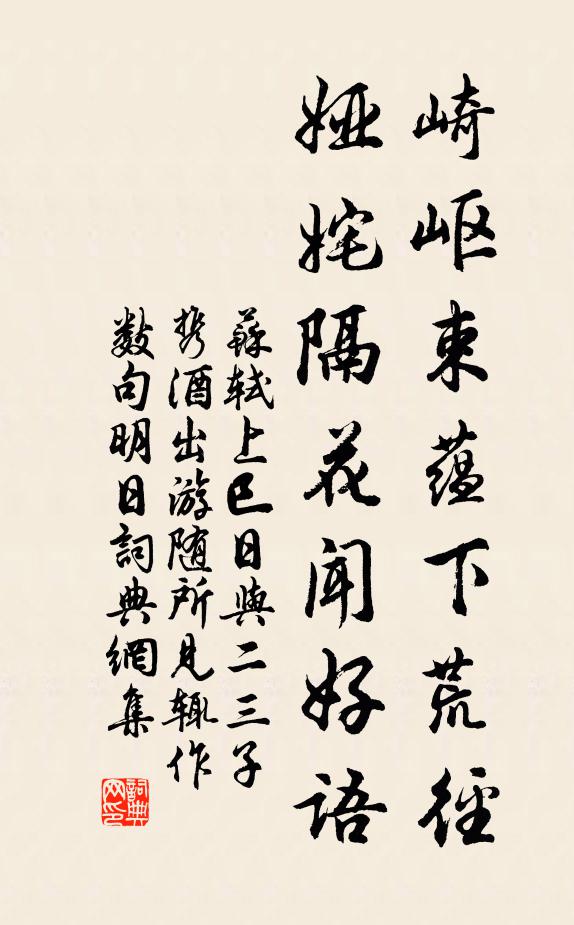 崎岖束蕴下荒径
娅姹隔花闻好語
蘇轼上巳日與二三子
携酒出游随所見辄作
数句明日詞典網集
詞典网印